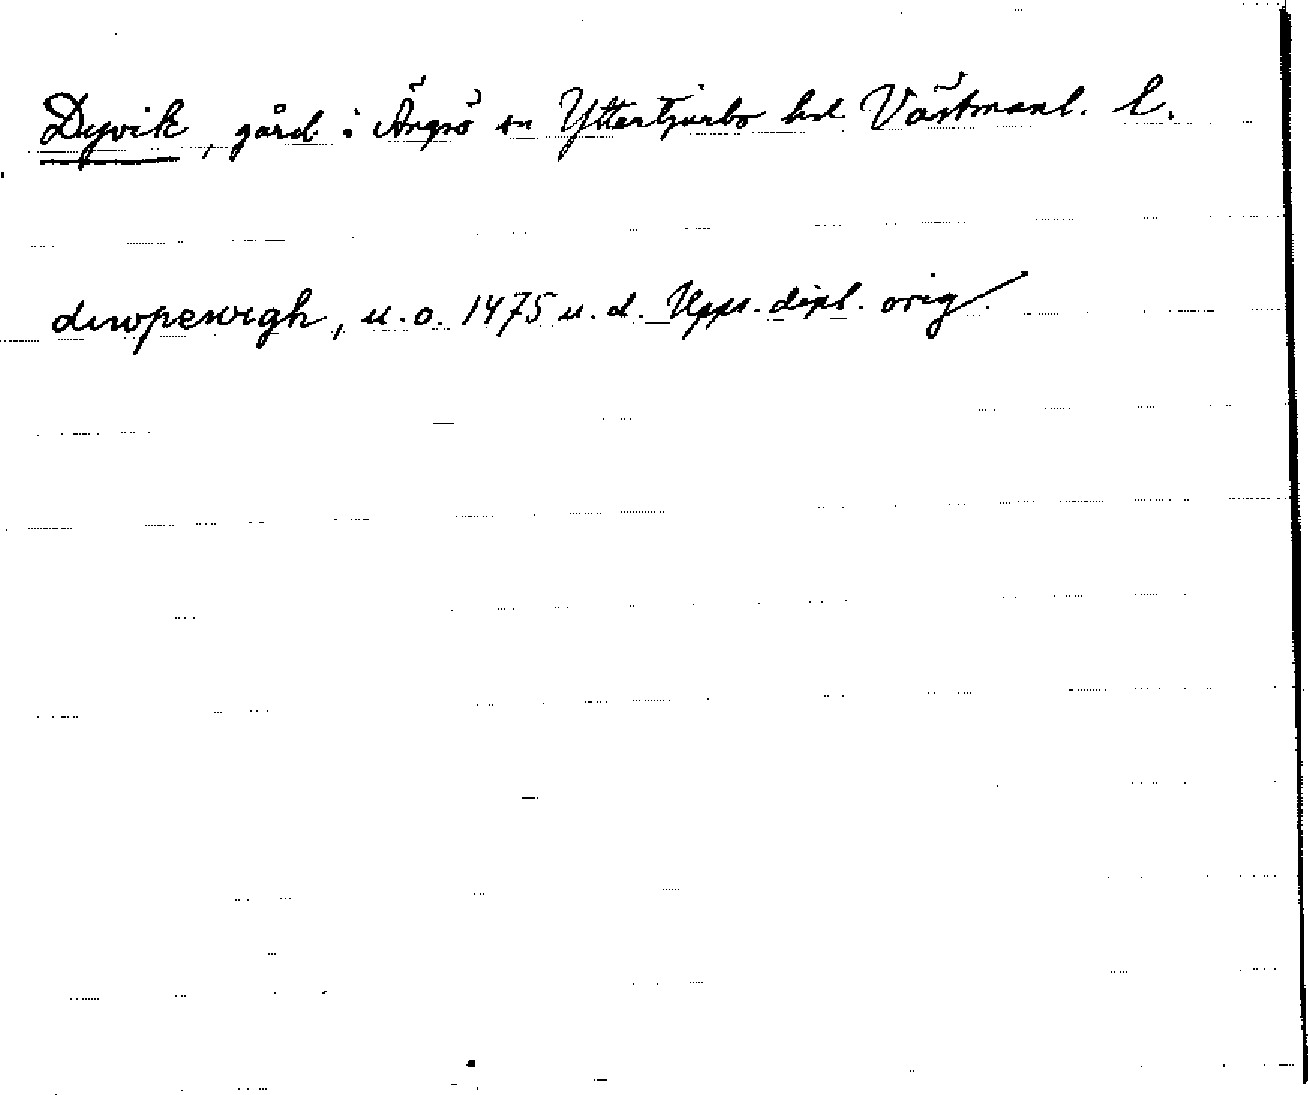 Dyvik, gård i Ängsö sn Yttertjurbo hd Västmanl. l.
diwpewigh, u.o. 1475 u.d. Upps. dipl. orig.